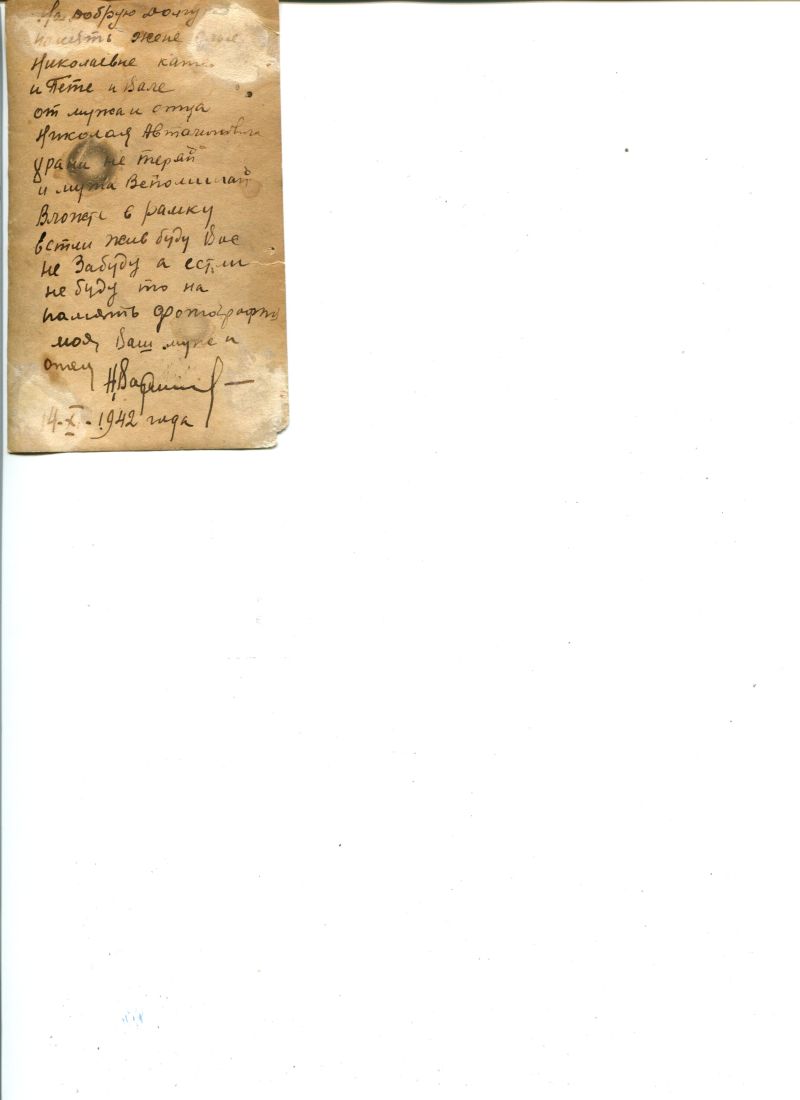 На добрую долгу
память жене
Николаевне
и Пете и Вале
от мужа и отца
Николая
не теряй
и мужа Вспоминай
Вложте в рамку
встли жив буду Вас
не Забуду а естли
не буду то на
память фотография
моя Ваш муж и
отец
14-X-1942 года